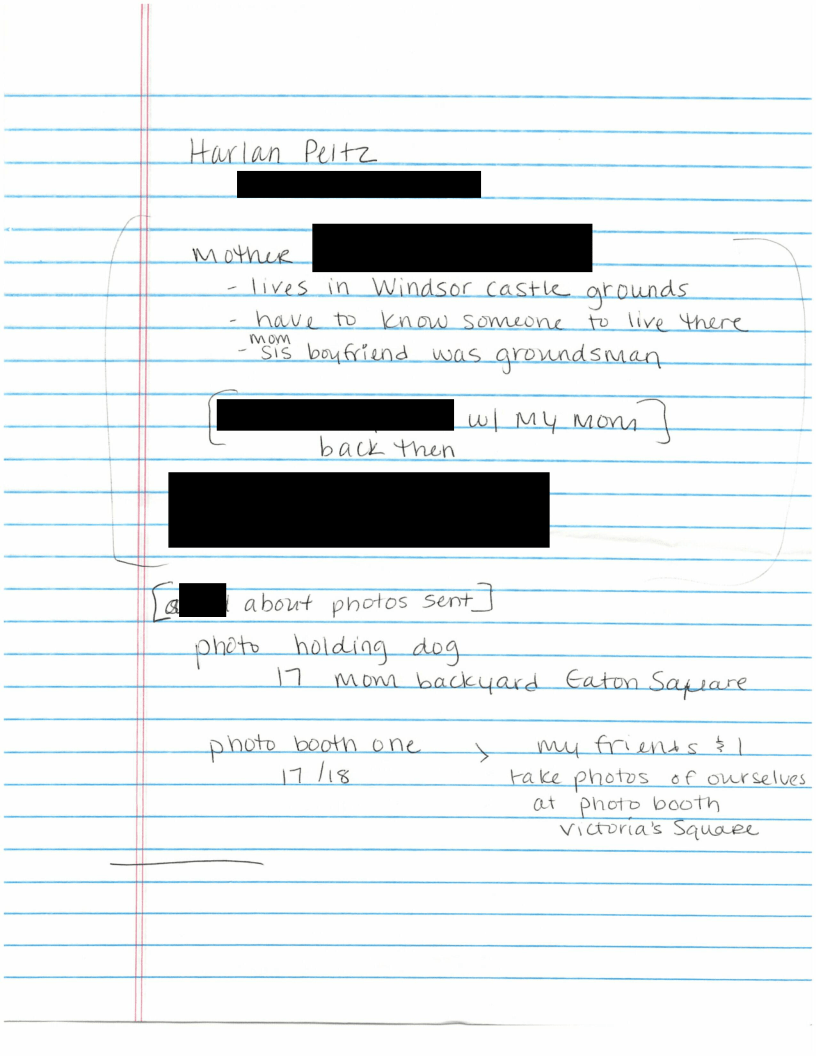 Harlan Peltz
Mother
- lives in Windsor castle grounds
- have to know someone to live there
mom
- sis boyfriend was groundsman
[ w/ My Mom ]
back then
[ about photos sent]
photo holding dog
17 mom backyard Eaton Square
photo booth one > my friends & I
17/18 take photos of ourselves
at photo booth
Victoria's Square